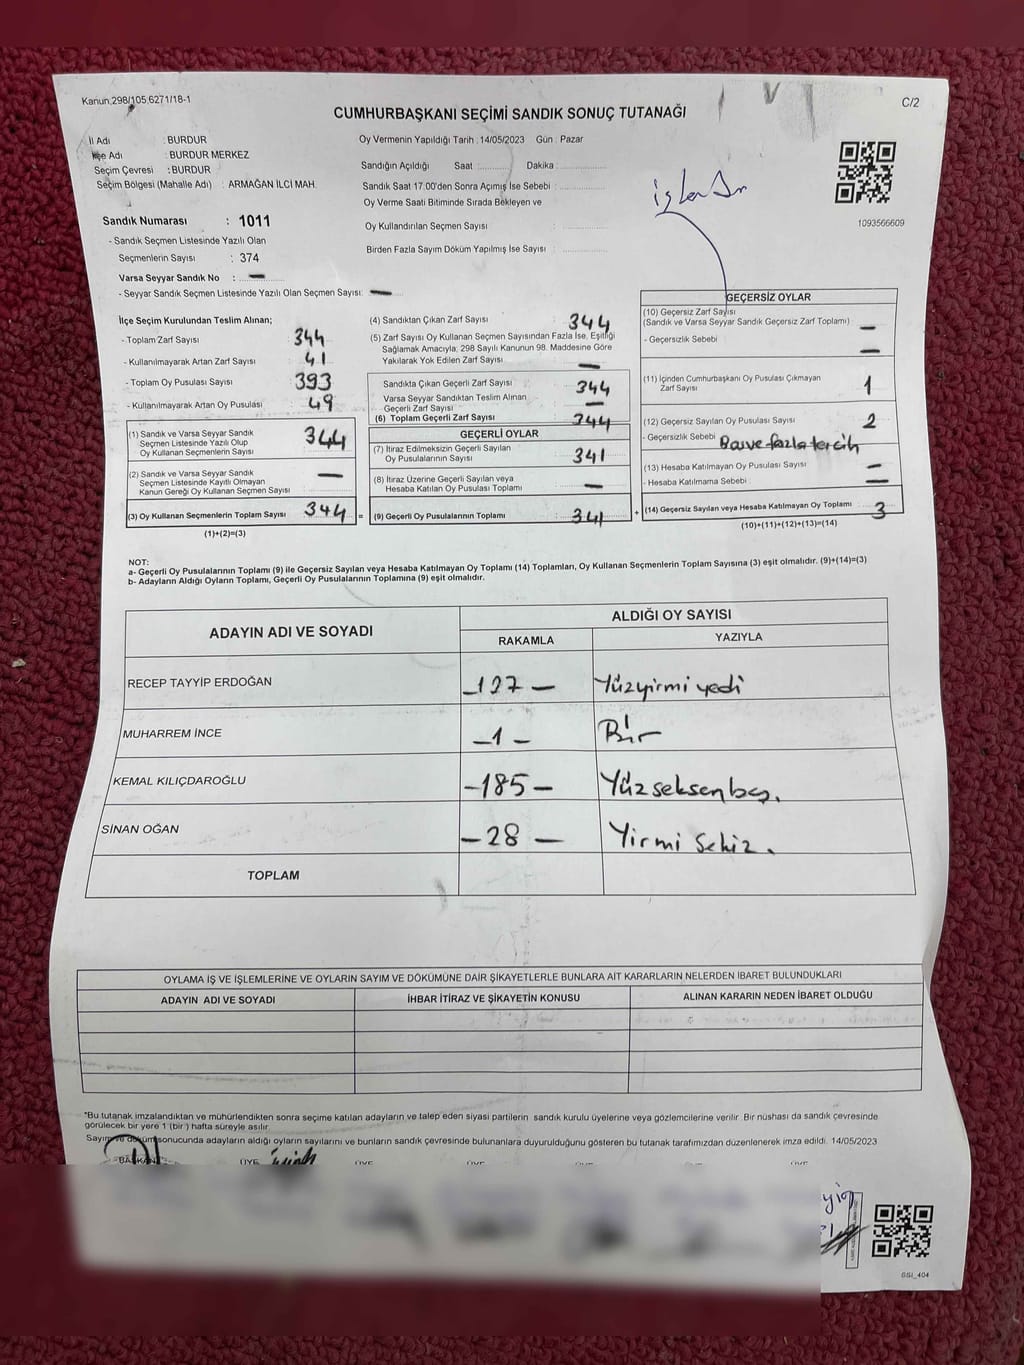 Kanun,298/105,6271/18-1
C/2
CUMHURBAŞKANI SEÇİMİ SANDIK SONUÇ TUTANAĞI
İl Adı : BURDUR
İlçe Adı : BURDUR MERKEZ
Seçim Çevresi : BURDUR
Seçim Bölgesi (Mahalle Adı) : ARMAĞAN İLCİ MAH.
Sandık Numarası : 1011
- Sandık Seçmen Listesinde Yazılı Olan
Seçmenlerin Sayısı : 374
Varsa Seyyar Sandık No : —
- Seyyar Sandık Seçmen Listesinde Yazılı Olan Seçmen Sayısı: —
Oy Vermenin Yapıldığı Tarih : 14/05/2023 Gün : Pazar
Sandığın Açıldığı Saat :.......... Dakika :..........
Sandık Saat 17.00'den Sonra Açımış İse Sebebi :..........
Oy Verme Saati Bitiminde Sırada Bekleyen ve
Oy Kullandırılan Seçmen Sayısı :..........
Birden Fazla Sayım Döküm Yapılmış İse Sayısı :..........
1093566609
İlçe Seçim Kurulundan Teslim Alınan;
- Toplam Zarf Sayısı 344
- Kullanılmayarak Artan Zarf Sayısı 41
- Toplam Oy Pusulası Sayısı 393
- Kullanılmayarak Artan Oy Pusulası 49
(1) Sandık ve Varsa Seyyar Sandık
Seçmen Listesinde Yazılı Olup
Oy Kullanan Seçmenlerin Sayısı 344
(2) Sandık ve Varsa Seyyar Sandık
Seçmen Listesinde Kayıtlı Olmayan
Kanun Gereği Oy Kullanan Seçmen Sayısı —
(3) Oy Kullanan Seçmenlerin Toplam Sayısı 344 =
(1)+(2)=(3)
(4) Sandıktan Çıkan Zarf Sayısı 344
(5) Zarf Sayısı Oy Kullanan Seçmen Sayısından Fazla İse, Eşitliği
Sağlamak Amacıyla; 298 Sayılı Kanunun 98. Maddesine Göre
Yakılarak Yok Edilen Zarf Sayısı —
Sandıkta Çıkan Geçerli Zarf Sayısı 344
Varsa Seyyar Sandıktan Teslim Alınan
Geçerli Zarf Sayısı —
(6) Toplam Geçerli Zarf Sayısı 344
GEÇERLİ OYLAR
(7) İtiraz Edilmeksizin Geçerli Sayılan
Oy Pusulalarının Sayısı 341
(8) İtiraz Üzerine Geçerli Sayılan veya
Hesaba Katılan Oy Pusulası Toplamı —
(9) Geçerli Oy Pusulalarının Toplamı 341 +
GEÇERSİZ OYLAR
(10) Geçersiz Zarf Sayısı
(Sandık ve Varsa Seyyar Sandık Geçersiz Zarf Toplamı) —
- Geçersizlik Sebebi —
(11) İçinden Cumhurbaşkanı Oy Pusulası Çıkmayan
Zarf Sayısı 1
(12) Geçersiz Sayılan Oy Pusulası Sayısı 2
- Geçersizlik Sebebi
(13) Hesaba Katılmayan Oy Pusulası Sayısı —
- Hesaba Katılmama Sebebi —
(14) Geçersiz Sayılan veya Hesaba Katılmayan Oy Toplamı 3
(10)+(11)+(12)+(13)=(14)
NOT:
a- Geçerli Oy Pusulalarının Toplamı (9) ile Geçersiz Sayılan veya Hesaba Katılmayan Oy Toplamı (14) Toplamları, Oy Kullanan Seçmenlerin Toplam Sayısına (3) eşit olmalıdır. (9)+(14)=(3)
b- Adayların Aldığı Oyların Toplamı, Geçerli Oy Pusulalarının Toplamına (9) eşit olmalıdır.
ADAYIN ADI VE SOYADI
ALDIĞI OY SAYISI
RAKAMLA YAZIYLA
RECEP TAYYİP ERDOĞAN -127- Yüzyirmi yedi
MUHARREM İNCE -1- Bir
KEMAL KILIÇDAROĞLU -185- Yüzseksenbeş.
SİNAN OĞAN -28- Yirmi Sekiz.
TOPLAM
OYLAMA İŞ VE İŞLEMLERİNE VE OYLARIN SAYIM VE DÖKÜMÜNE DAİR ŞİKAYETLERLE BUNLARA AİT KARARLARIN NELERDEN İBARET BULUNDUKLARI
ADAYIN ADI VE SOYADI İHBAR İTİRAZ VE ŞİKAYETİN KONUSU ALINAN KARARIN NEDEN İBARET OLDUĞU
"Bu tutanak imzalandıktan ve mühürlendikten sonra seçime katılan adayların ve talep eden siyasi partilerin sandık kurulu üyelerine veya gözlemcilerine verilir. Bir nüshası da sandık çevresinde
görülecek bir yere 1 (bir ) hafta süreyle asılır.
Sayım ve döküm sonucunda adayların aldığı oyların sayılarını ve bunların sandık çevresinde bulunanlara duyurulduğunu gösteren bu tutanak tarafımızdan düzenlenerek imza edildi. 14/05/2023
BAŞKAN ÜYE ÜYE ÜYE ÜYE ÜYE ÜYE
SSI_404